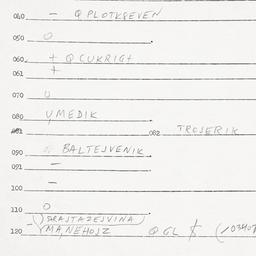 040 — Q PLOTKREVEN
050 O
060 + Q CUKRIGT
061 +
070 U
080 U MEDIK
081 082 TROJERIK
090 BALTEJVENIK
091 —
100 —
110 O
—) DRAJTAZEJVINA)
120 MA, NEHOJZ Q GL $